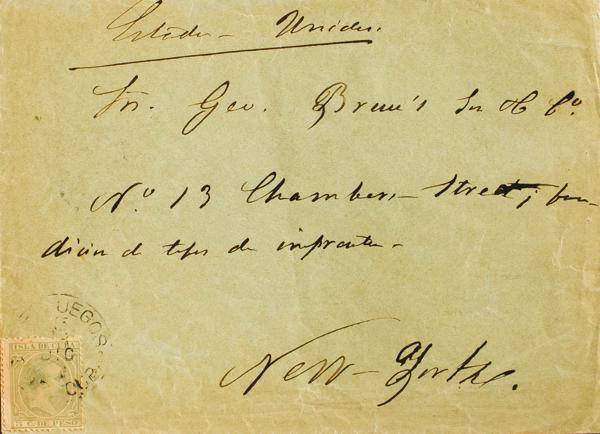 Estados Unidos.
Sr. Geo. Bruce's Son & Co.
No. 13 Chambers Street, fun-
dicion de tipos de imprenta.
New-York.
UEGOS
DIC
CUB
ISLA DE CUBA
5 C. DE PESO